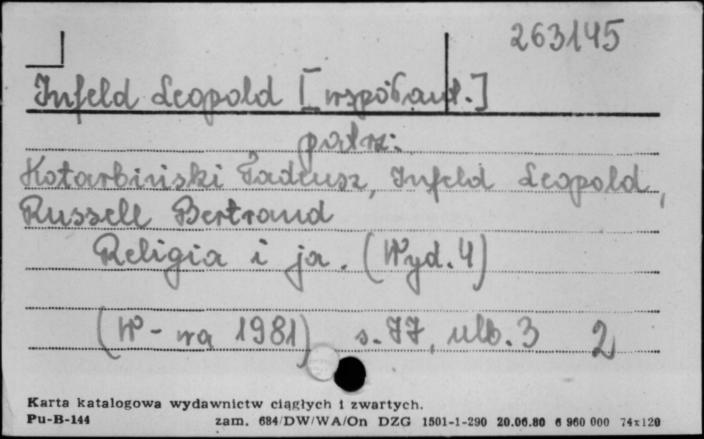 263145
Infeld Leopold [współaut.]
patrz:
Kotarbiński Tadeusz, Infeld Leopold,
Russell Bertrand
Religia i ja. (Wyd. 4)
(W-wa 1981) s. 77, nlb. 3 2
Karta katalogowa wydawnictw ciągłych i zwartych.
Pu-B-144 zam. 684/DW/WA/On DZG 1501-1-290 20.06.80 6 960 000 74x120